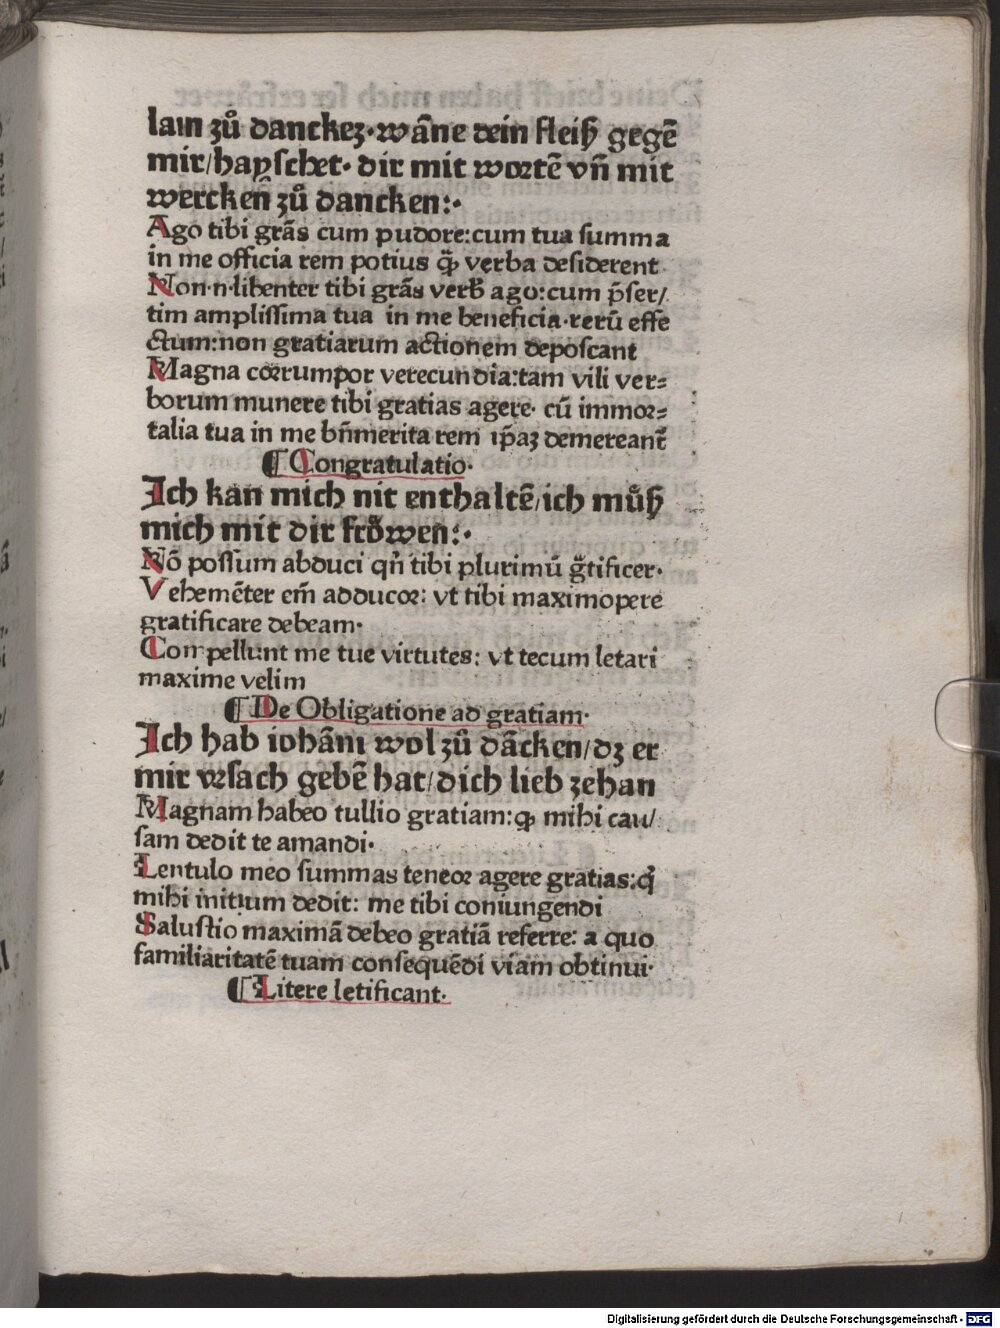 lain zů danckez·wāne dein fleiß gegē
mir/hayschet· dir mit wortē vn̄ mit
wercken̄ zů dancken:·
Ago tibi grās cum pudore:cum tua summa
in me officia rem potius ꝙ̄ verba desiderent
Non·n·libenter tibi grās verb̄ ago:cum p̄ser/
tim amplissima tua in me beneficia·rerū effe
ctum:non gratiarum actionem deposcant
Magna corrumpor verecundia:tam vili ver⸗
borum munere tibi gratias agere· cū immor⸗
talia tua in me bn̄merita rem ip̄aꝫ demereant̄
¶ Congratulatio·
Ich kan mich nit enthaltē/ich můß
mich mit dir frŏwen:·
Nō possum abduci qn̄ tibi plurimū gr̄tificer·
Vehemēter em̄ adducor: vt tibi maximopere
gratificare debeam·
Compellunt me tue virtutes: vt tecum letari
maxime velim
¶ De Obligatione ad gratiam·
Ich hab iohāni wol zů dācken/dz er
mir vrsach gebē hat/dich lieb zehan
Magnam habeo tullio gratiam:ꝙ mihi cau/
sam dedit te amandi·
Lentulo meo summas teneor agere gratias:ꝙ
mihi initium dedit: me tibi coniungendi
Salustio maximā debeo gratiā referre: a quo
familiaritatē tuam consequēdi viam obtinui·
¶ Litere letificant·
Digitalisierung gefördert durch die Deutsche Forschungsgemeinschaft - DFG